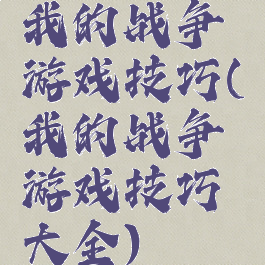 我的战争
游戏技巧(
我的战争
游戏技巧
大全)